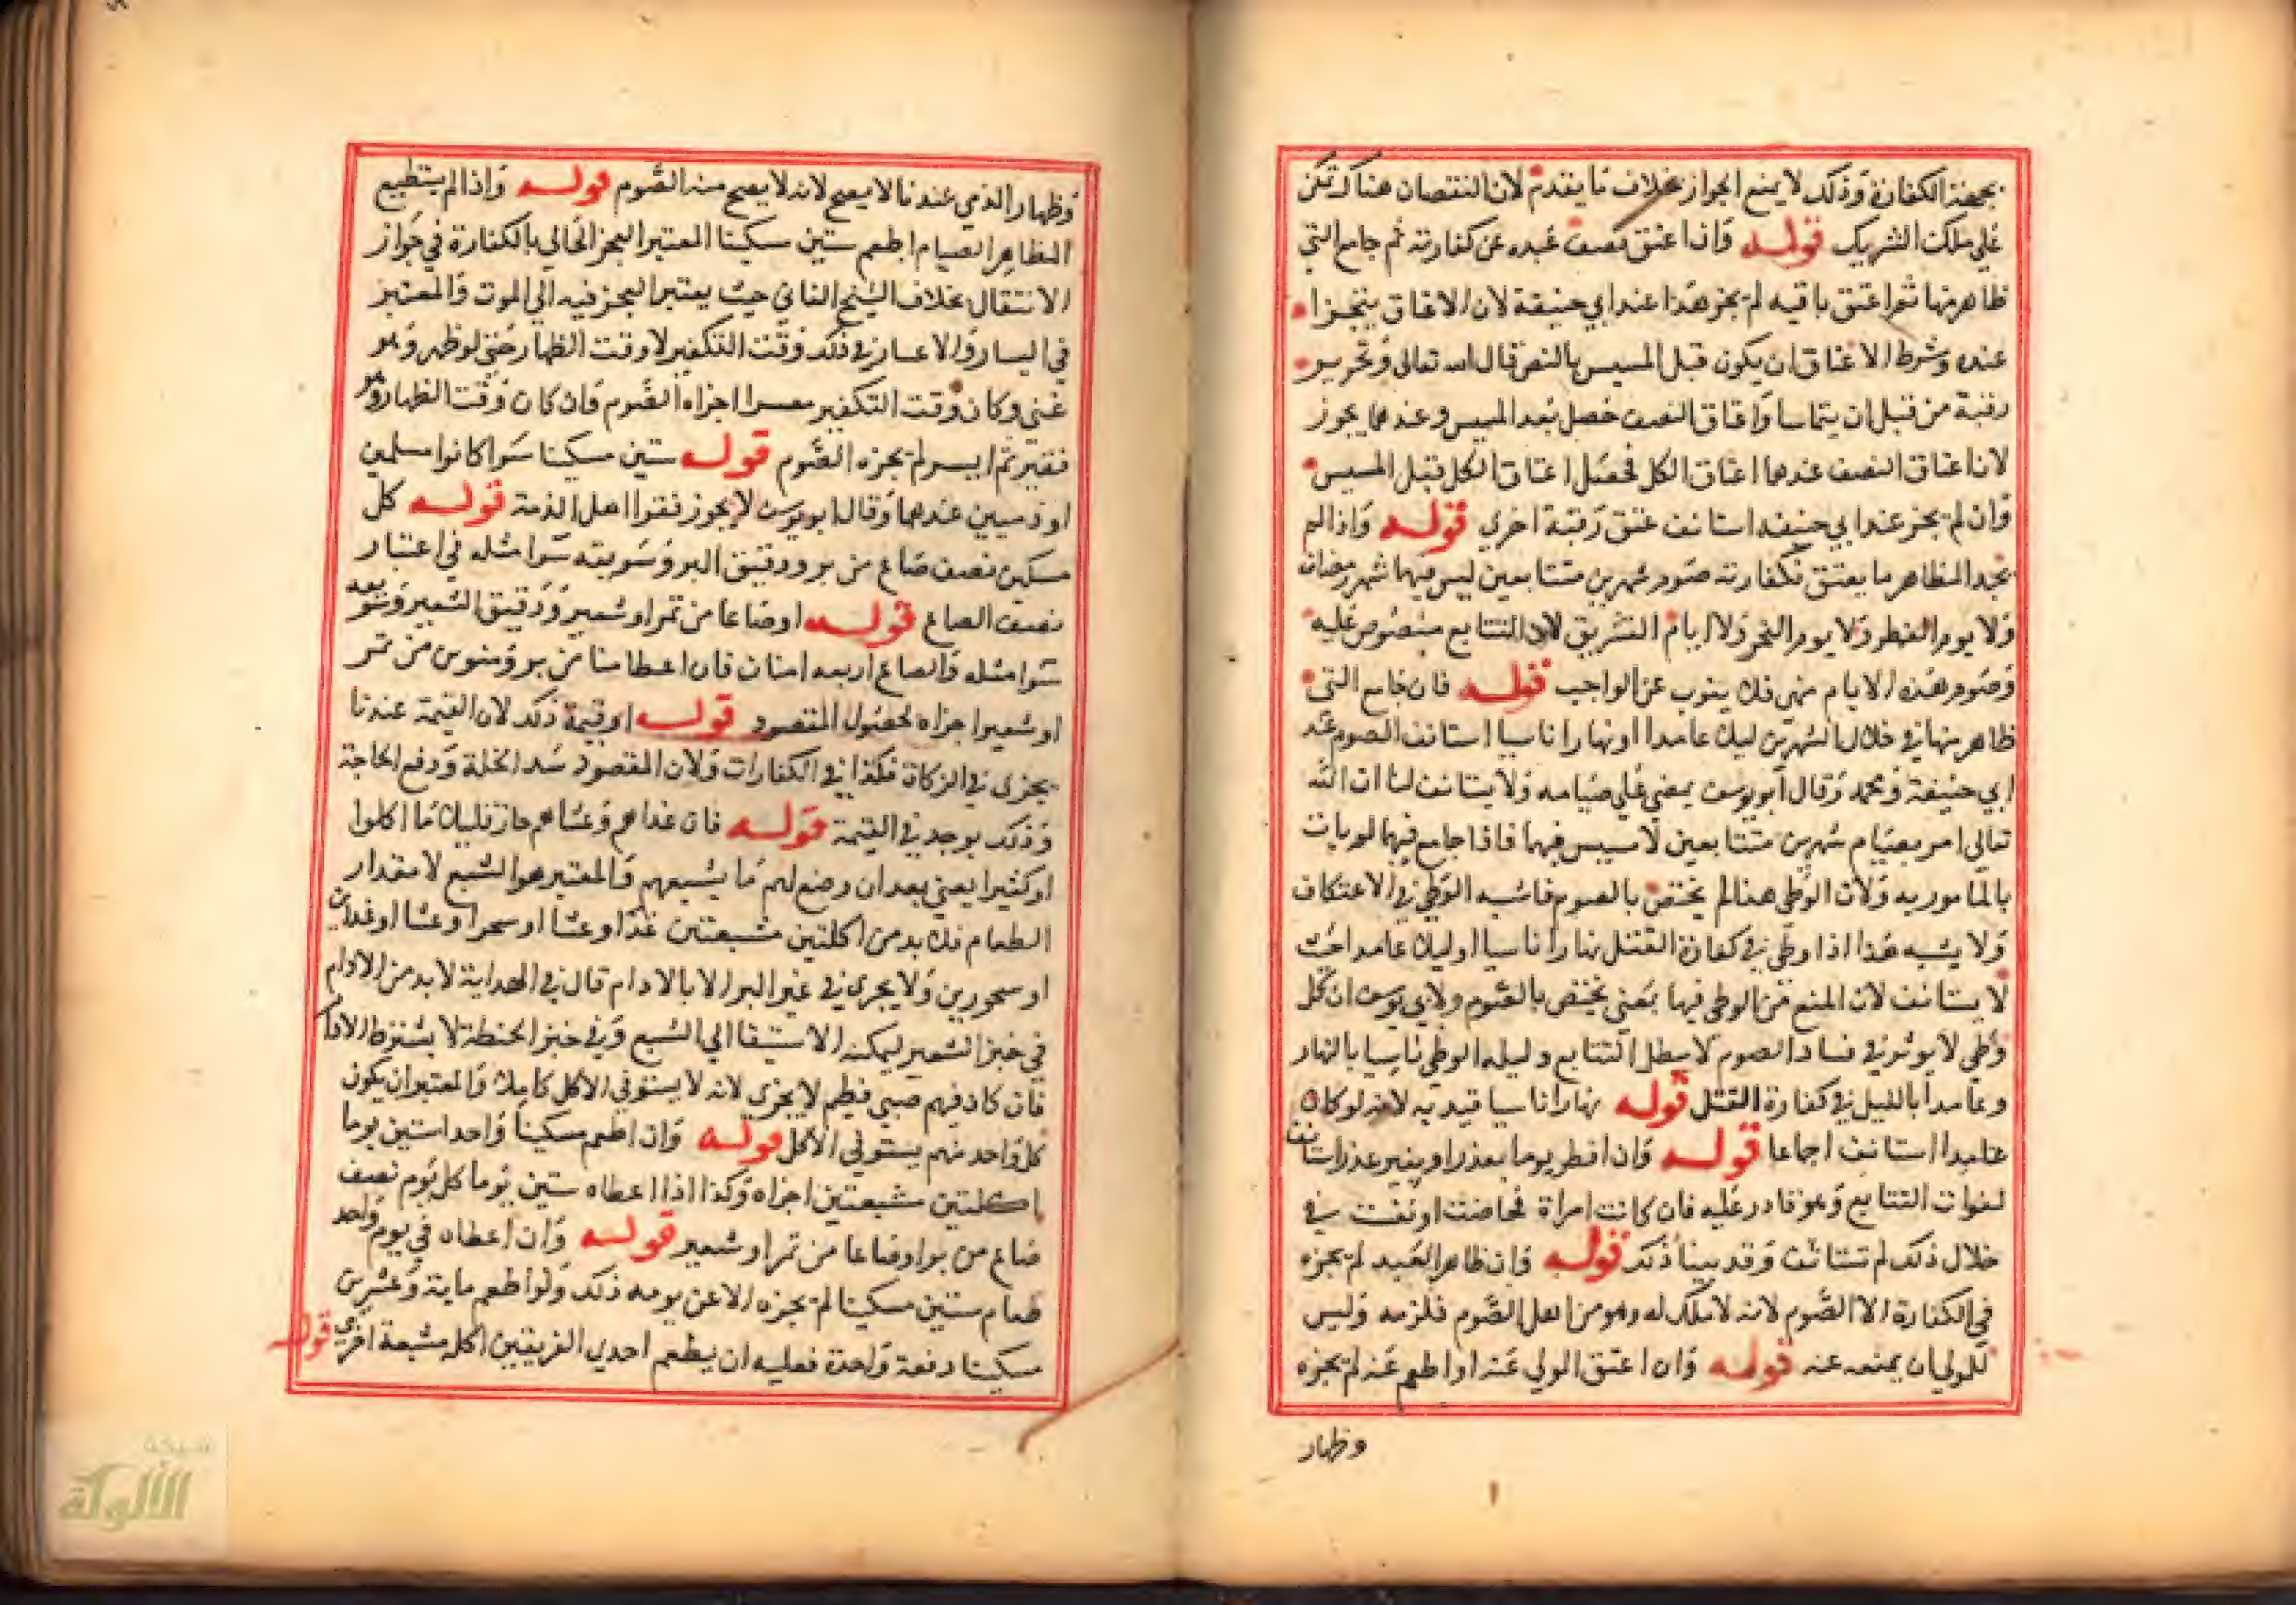 بجهة الكفارة وذلك لا يمنع الجواز بخلاف ما يقدم لان النقصان هناك تمكن
علي ملك الشريك قوله وان اعتق نصف عبده عن كفارته ثم جامع التي
ظاهر منها ثم اعتق باقيه لم يجز هذا عند ابي حنيفة لان الاعتاق يتجزا
عنده وشرط الاعتاق ان يكون قبل المسيس بالنص قال الله تعالى وتحرير
رقبة من قبل ان يتماسا واعتاق النصف حصل بعد المسيس وعندهما يجوز
لان اعتاق النصف عندهما اعتاق الكل فحصل اعتاق الكل قبل المسيس
وان لم يجز عند ابي حنيفه استانف عتق رقبة اخري قوله واذا لم
يجد المظاهر ما يعتق فكفارته صوم شهرين متتابعين ليس فيهما شهر رمضان
ولا يوم الفطر ولا يوم النحر ولا ايام التشريق لان التتابع منصوص عليه
وصوم هذه الايام منهي فلا ينوب عن الواجب قوله فان جامع التي
ظاهر منها في خلال الشهرين ليلا عامدا او نهارا ناسيا استانف الصوم عند
ابي حنيفة ومحمد وقال ابو يوسف يمضي علي صيامه ولا يستانف لنا ان الله
تعالى امر بصيام شهرين متتابعين لا مسيس فيهما فاذا جامع فيهما لم يات
بالمامور به ولان الوطي هنا لم يختص بالصوم فاشبه الوطي في الاعتكاف
ولا يشبه هذا اذا وطي في كفارة القتل نهارا ناسيا او ليلا عامدا حيث
لا يستانف لان المنع من الوطي فيها بمعني يختص بالصوم ولابي يوسف ان كل
وطي لا يوثر في فساد الصوم لا يبطل التتابع دليله الوطي ناسيا بالنهار
وعامدا بالليل في كفارة القتل قوله نهارا ناسيا قيد به لانه لو كان
عامدا استانف اجماعا قوله وان افطر يوما بعذر او بغير عذر استانف
لفوات التتابع وهو قادر عليه فان كانت امراة فحاضت او نفست في
خلال ذلك لم تستانف وقد بينا ذلك قوله وان ظاهر العبد لم يجزه
في الكفارة الا الصوم لانه لا ملك له وهو من اهل الصوم فلزمه وليس
للمولي ان يمنعه عنه قوله وان اعتق المولي عنه او اطعم عنه لم يجزه
وظهار
وظهار الذمي عندنا لا يصح لانه لا يصح منه الصوم قوله واذا لم يستطيع
المظاهر الصيام اطعم ستين مسكينا المعتبر العجز الحالي بالكفارة في جواز
الانتقال بخلاف الشيخ الفاني حيث يعتبر العجز فيه الي الموت والمعتبر
في اليسار والاعسار في ذلك وقت التكفير لا وقت الظهار حتي لو ظهر وهو
غني وكان وقت التكفير معسرا اجزاه الصوم وان كان وقت الظهار وهو
فقير ثم ايسر لم يجزه الصوم قوله ستين مسكينا سوا كانوا مسلمين
او ذميين عندهما وقال ابو يوسف لا يجوز فقرا اهل الذمة قوله كل
مسكين نصف صاع من بر ودقيق البر وسويقه سوا مثله في اعتبار
نصف الصاع قوله او صاعا من تمر او شعير ودقيق الشعير وسويقه
سوا مثله والصاع اربعه امنان فان اعطا منا من بر ومنوين من تمر
او شعير اجزاه لحصول المقصود قوله او قيمة ذلك لان القيمة عندنا
يجزي في الزكاة فكذا في الكفارات ولان المقصود سد الخلة ودفع الحاجة
وذلك يوجد في القيمة قوله فان غداهم وعشاهم جاز قليلا ما اكلوا
او كثيرا يعني بعد ان وضع لهم ما يشبعهم والمعتبر هو الشبع لا مقدار
الطعام فلا بد من اكلتين مشبعتين غدا وعشا او سحرا وعشا او غداين
او سحورين ولا يجزي في غير البر الا بالادام قال في الهداية لا بد من الادام
في خبز الشعير ليمكنه الاستيفا الي الشبع وفي خبز الحنطة لا يشترط الادام
فان كان فيهم صبي فطيم لا يجزي لانه لا يستوفي الاكل كاملا والمعتبر ان يكون
كل واحد منهم يستوفي الاكل قوله وان اطعم مسكينا واحدا ستين يوما
اكلتين مشبعتين اجزاه وكذا اذا اعطاه ستين يوما كل يوم نصف
صاع من بر او صاعا من تمر او شعير قوله وان اعطاه في يوم واحد
طعام ستين مسكينا لم يجزه الا عن يومه ذلك ولو اطعم ماية وعشرين
مسكينا دفعة واحدة فعليه ان يطعم احدي الفريقين اكلة مشبعة اخري قوله
شبكة
الألوكة